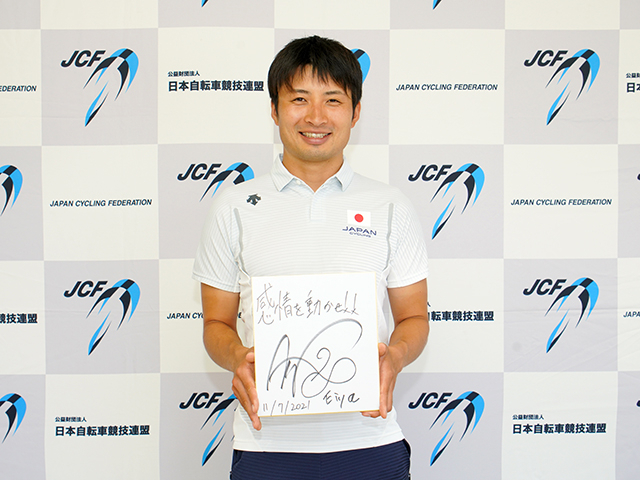 JCF
JCF
公益財団法人
日本自転車競技連盟
JAPAN CYCLING FEDERATION
JAPAN CYCLING FEDERATION
JCF
JCF
JAPAN CYCLING FEDERATION
JAPAN CYCLING FEDERATION
JAPAN
CYCLING
感情を動かせ!!
11/7/2021 Eiya
JCF
JCF
公益財団法人
日本自転車競技連盟
JCF
JCF
公益財団法人
日本自転車競技連盟